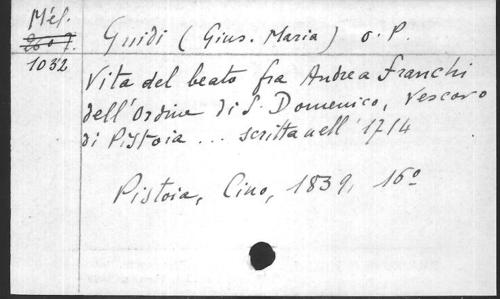 Mél.
1032
Guidi (Gius. Maria) o. P.
Vita del beato fra Andrea Franchi
dell'Ordine di S. Domenico, Vescovo
di Pistoia ... scritta nell' 1714
Pistoia, Cino, 1839, 16º